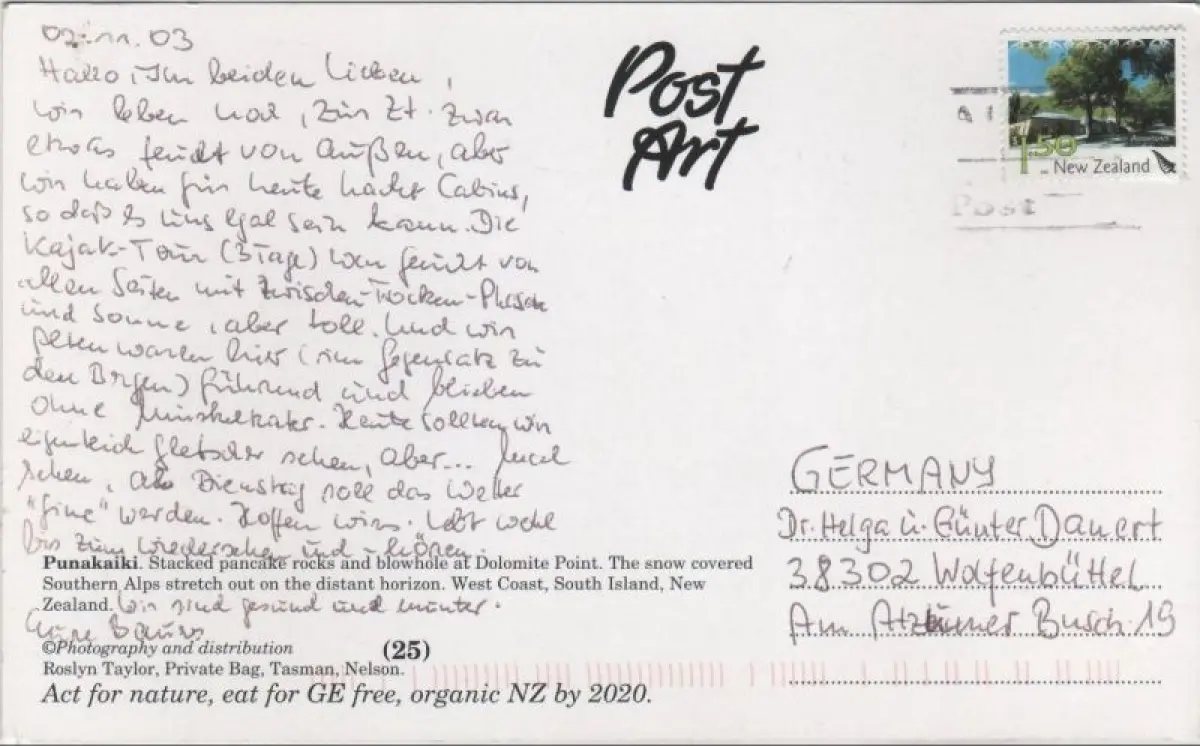 02.11.03
Hallo, Ihr beiden Lieben,
wir leben noch, zur Zt. zwar
etwas feucht von außen, aber
wir haben für heute Nacht Cabins,
so daß es uns egal sein kann. Die
Kajak-Tour (3 Tage) war feucht von
allen Seiten mit Zwischen-Trocken-Phasen
und Sonne, aber toll. Und wir
Alten waren hier (im Gegensatz zu
den Bergen) führend und blieben
ohne Muskelkater. Heute sollten wir
eigentlich Gletscher sehen, aber...
sehen. Ab Dienstag soll das Wetter
"fine" werden. Hoffen wirs. Lebt wohl
bis zum Wiedersehen und -hören.
Wir sind gesund und munter.
Eure
Post
Art
1.50
New Zealand
Post
GERMANY
Dr. Helga u. Günter Dauert
38302 Wolfenbüttel
Am Atzumer Busch 19
Punakaiki. Stacked pancake rocks and blowhole at Dolomite Point. The snow covered
Southern Alps stretch out on the distant horizon. West Coast, South Island, New
Zealand.
©Photography and distribution (25)
Roslyn Taylor, Private Bag, Tasman, Nelson.
Act for nature, eat for GE free, organic NZ by 2020.